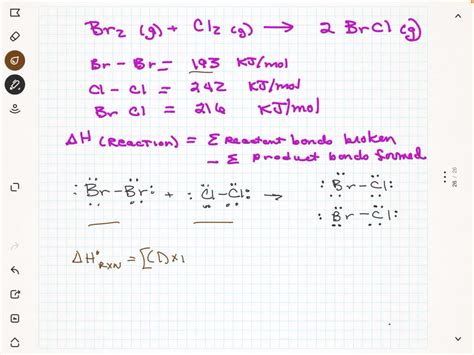 Br2 (g) + Cl2 (g) → 2 BrCl (g)
Br - Br = 193 KJ/mol
Cl - Cl = 242 KJ/mol
Br Cl = 216 KJ/mol
ΔH (Reaction) = Σ Reactant bonds broken
- Σ product bonds formed
:Br-Br: + :Cl-Cl: → :Br-Cl:
:Br-Cl:
ΔH°RXN = [(1)x1
26 / 26